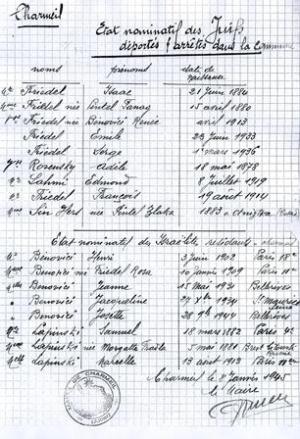 Charmeil
Etat nominatif des Juifs
déportés & arrêtés dans la commune
noms prénoms date de naissance
Mr Friedel Isaac 21 Juin 1880
Mme Friedel née 15 avril 1880
Mme Friedel née Benovici Renée avril 1913
Friedel Emile 23 Juin 1933
Friedel Serge 1 mars 1936
Mme Rosensky Adèle 18 mai 1878
Mr Lahmi Edmond 8 Juillet 1919
Mr Friedel François 19 août 1914
Mme née Zlata 1883
Etat nominatif des Israélites résidants
Mr Benovici Henri 3 Juin 1902 Paris 18e
Mme Benovici née Friedel Rosa 10 janvier 1909 Paris 11e
Melle Benovici Jeanne 15 Mai 1931 Bellerives
" Benovici Jacqueline 27 Xbre 1934 St Maurice
" Benovici Josette 28 9bre 1944 Bellerives
Mr Lapinski Samuel 18 mars 1882 Paris 4e
Mme Lapinski née 5 mai 1880
Melle Lapinski Marcelle 13 août 1913 Paris
Charmeil le 8 Janvier 1945
le Maire
MAIRIE DE CHARMEIL